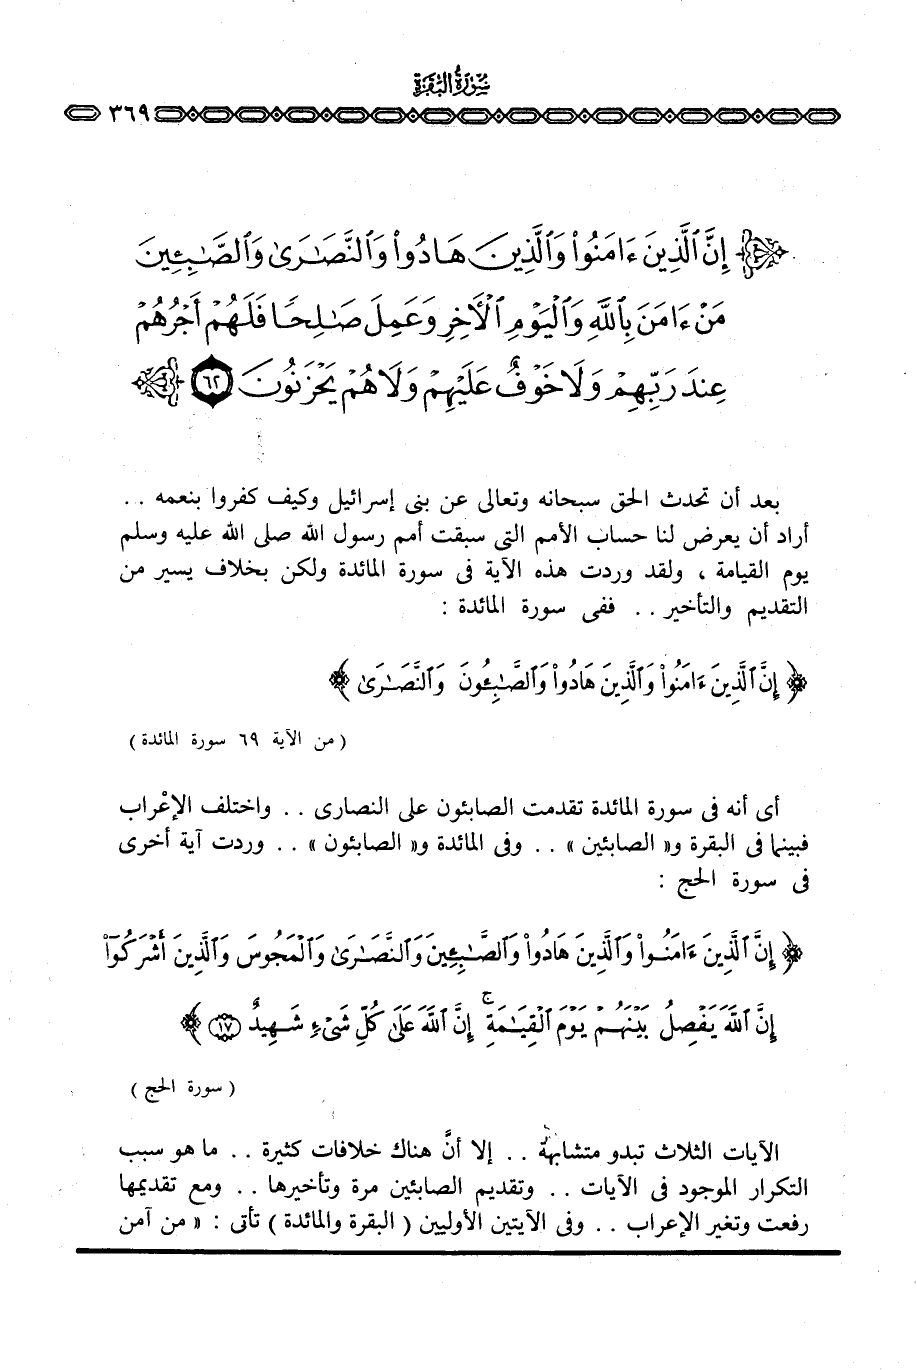 سُورَةُ البَقَرَة
٣٦٩
﴿ إِنَّ ٱلَّذِينَ ءَامَنُوا۟ وَٱلَّذِينَ هَادُوا۟ وَٱلنَّصَـٰرَىٰ وَٱلصَّـٰبِـِٔينَ
مَنْ ءَامَنَ بِٱللَّهِ وَٱلْيَوْمِ ٱلْـَٔاخِرِ وَعَمِلَ صَـٰلِحًا فَلَهُمْ أَجْرُهُمْ
عِندَ رَبِّهِمْ وَلَا خَوْفٌ عَلَيْهِمْ وَلَا هُمْ يَحْزَنُونَ ٦٢ ﴾
بعد أن تحدث الحق سبحانه وتعالى عن بنى إسرائيل وكيف كفروا بنعمه . .
أراد أن يعرض لنا حساب الأمم التى سبقت أمم رسول الله صلى الله عليه وسلم
يوم القيامة ، ولقد وردت هذه الآية فى سورة المائدة ولكن بخلاف يسير من
التقديم والتأخير . . ففى سورة المائدة :
﴿ إِنَّ ٱلَّذِينَ ءَامَنُوا۟ وَٱلَّذِينَ هَادُوا۟ وَٱلصَّـٰبِـُٔونَ وَٱلنَّصَـٰرَىٰ ﴾
( من الآية ٦٩ سورة المائدة )
أى أنه فى سورة المائدة تقدمت الصابئون على النصارى . . واختلف الإعْراب
فبينما فى البقرة و« الصابئين » . . وفى المائدة و« الصابئون » . . وردت آية أخرى
فى سورة الحج :
﴿ إِنَّ ٱلَّذِينَ ءَامَنُوا۟ وَٱلَّذِينَ هَادُوا۟ وَٱلصَّـٰبِـِٔينَ وَٱلنَّصَـٰرَىٰ وَٱلْمَجُوسَ وَٱلَّذِينَ أَشْرَكُوٓا۟
إِنَّ ٱللَّهَ يَفْصِلُ بَيْنَهُمْ يَوْمَ ٱلْقِيَـٰمَةِ ۚ إِنَّ ٱللَّهَ عَلَىٰ كُلِّ شَىْءٍ شَهِيدٌ ١٧ ﴾
( سورة الحج )
الآيات الثلاث تبدو متشابهة . . إلا أنَّ هناك خلافات كثيرة . . ما هو سبب
التكرار الموجود فى الآيات . . وتقديم الصابئين مرة وتأخيرها . . ومع تقديمها
رفعت وتغير الإعراب . . وفى الآيتين الأوليين ( البقرة والمائدة ) تأتى : « من آمن